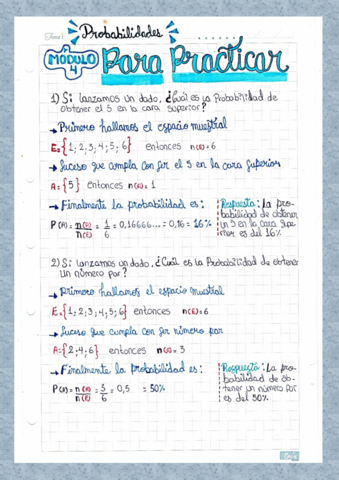 Probabilidades
MÓDULO
4
Para Practicar
1) Si lanzamos un dado, ¿Cuál es la Probabilidad de
obtener el 5 en la cara superior?
→ Primero hallamos el espacio muestral
E={1; 2; 3; 4; 5; 6} entonces n(E)=6
→ Suceso que cumpla con ser el 5 en la cara superior
A={5} entonces n(A)=1
→ Finalmente la probabilidad es:
P(A)= n(A)/n(E) = 1/6 = 0,16666... = 0,16 = 16%
Respuesta: La pro-
babilidad de obtener
un 5 en la cara supe
rior es del 16%
2) Si lanzamos un dado, ¿Cuál es la Probabilidad de obtener
un número par?
→ Primero hallamos el espacio muestral
E={1; 2; 3; 4; 5; 6} entonces n(E)=6
→ Suceso que cumpla con ser número par
A={2; 4; 6} entonces n(A)=3
→ Finalmente la probabilidad es:
P(A)= n(A)/n(E) = 3/6 = 0,5 = 50%
Respuesta: La pro-
babilidad de ob-
tener un número par
es del 50%